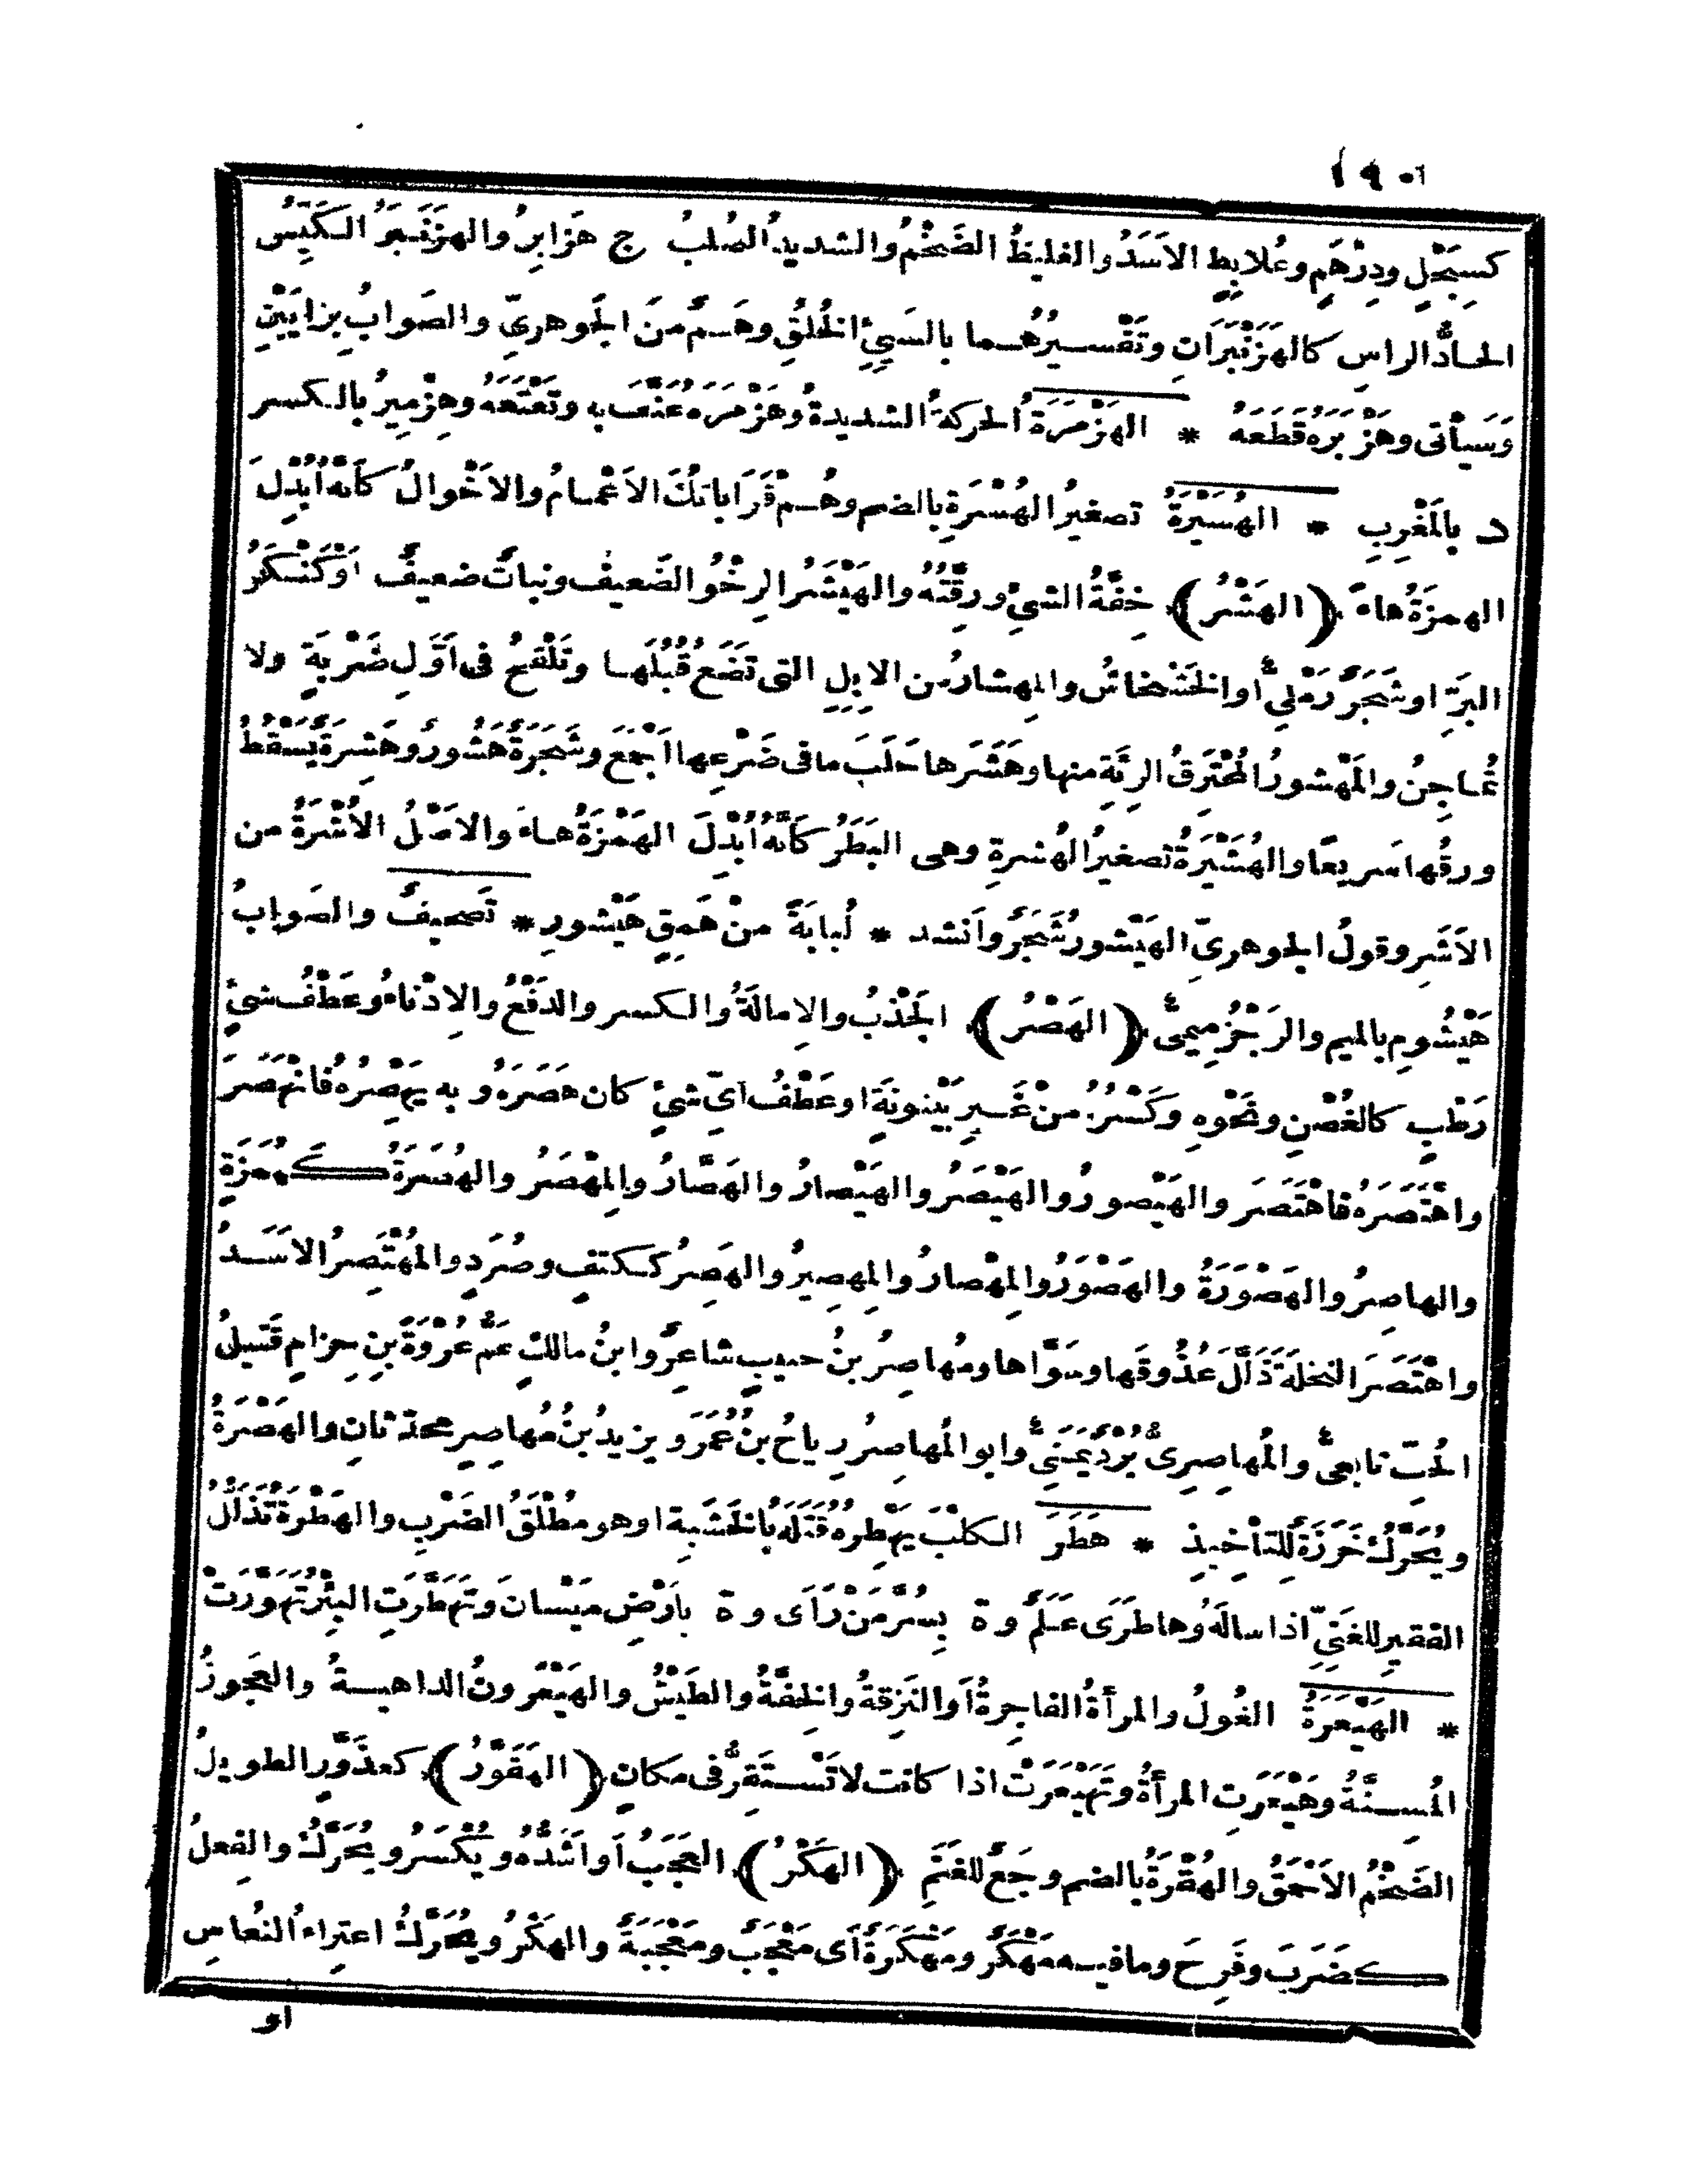 ١٩٠٦
كسِبَحْلٍ ودِرْهَمٍ وعُلابِطٍ الاَسَدُ والغليظُ الضَخْمُ والشديدُ الصُلبُ ج هَزابِرُ والهزَنْبَرُ الكَيِّسُ
الحادُّ الراسِ كالهَزَنْبَرَانِ وتَفْسيرُهُما بالسَيِّئِ الخُلُقِ وهَمٌ منَ الجَوهريِّ والصَوابُ بِزايَيْنِ
وَسَيأْتى وهَزْبَرَهُ قَطَعَهُ * الهَزْمَرَةُ الحركةُ الشديدةُ وهَزْمَرَهُ عَنَّفَ به وتَعْتَعَهُ وهِزْمِيرُ بالكسر
د بالمَغْرِبِ * الهُسَيْرَةُ تصغيرُ الهُسْرَةِ بالضم وهُمْ قَرَاباتُكَ الاَعْمامُ والاَخْوالُ كأَنَّهُ اُبْدِلَ
الهمزَةُ هاءً ﴿الهَشْرُ﴾ خِفَّةُ الشئِ ورِقَّتُهُ والهَيْشَرُ الرِخْوُ الضَعيفُ ونباتٌ ضعيفٌ اَوْ كَنْكَرُ
البَرِّ او شَجَرٌ رَمْلِيٌّ او الخَشْخَاشُ والمِهشارُ من الاِبِلِ التى تَضَعُ قُبُلَها وتَلْقَحُ فى اَوَّلِ ضَرْبَةٍ ولا
تُماجِنُ والمَهْشورُ المُحْتَرِقُ الرِئَةِ منها وهَشَرَها حَلَبَ ما فى ضَرْعِها اَجْمَعَ وشَجَرَةٌ هَشُورٌ وهَشِرَةٌ يَسْقُطُ
ورقُها سَريعًا والهُشَيْرَةُ تصغيرُ الهُشرةِ وهى البَطَرُ كأَنَّهُ اُبْدِلَ الهَمْزَةُ هاءً والاَصْلُ الاُشْرَةُ من
الاَشَرِ وقولُ الجوهريِّ الهَيْشورُ شَجَرٌ واَنشد * لُبابَةً منْ هَمِقٍ هَيْشورِ * تَصحيفٌ والصَوابُ
هَيْشُومِ بالميم والرَجْزُ ميمىٌّ ﴿الهَصْرُ﴾ الجَذْبُ والاِمالَةُ والكسر والدَفْعُ والاِدْناءُ وعَطْفُ شئٍ
رَطْبٍ كالغُصْنِ ونَحْوِهِ وكَسْرُهُ منْ غَيرِ بَيْنونَةٍ او عَطْفُ اَىِّ شئٍ كان هَصَرَهُ وبه يَهْصِرُهُ فانْهَصَرَ
واهْتَصَرَهُ فاهْتَصَرَ والهَيْصورُ والهَيْصَرُ والهَيْصارُ والهَصَّارُ والمِهْصَرُ والهُصَرَةُ كهُمَزَةٍ
والهاصِرُ والهَصْوَرَةُ والهَصْوَرُ والمِهْصارُ والمِهصِيرُ والهَصِرُ ككتفٍ وصُرَدٍ والمُهْتَصِرُ الاَسَدُ
واهْتَصَرَ النخلةَ ذَلَّلَ عُذُوقَها وسَوَّاها ومُهاصِرُ بنُ حبيبٍ شاعِرٌ وابنُ مالكٍ عَمُّ عُرْوَةَ بنِ حِزامٍ قَتيلُ
الحُبِّ تابعىٌّ والمُهاصِرِىُّ بُرْدٌ يَمَنىٌّ وابو المُهاصِرُ رِياحُ بنُ عُمَرَ ويزيدُ بنُ مُهاصِرٍ محدّثانِ والهَصْرَةُ
ويُحَرَّكُ خَرَزَةٌ للتأْخيذِ * هَطَرَ الكلْبَ يَهْطِرُهُ قَتَلَهُ بالخَشَبِةِ او هو مُطْلَقُ الضَرْبِ والهَطْرَةُ تَذَلُّلُ
الفقيرِ للغَنِىِّ اذا سالَهُ وهاطَرَى عَلَمٌ و ة بِسُرَّ مَنْ رَاَى و ة باَرْضِ مَيْسانَ وتَهَطَّرَتِ البِئْرُ تَهَوَّرَتْ
* الهَيْعَرَةُ الغُولُ والمرأةُ الفاجِرةُ اَو النَزِقةُ والخِفَّةُ والطَيْشُ والهَيْعَرونُ الداهيةُ والعَجوزُ
المُسِنَّةُ وهَيْعَرَتِ المرأةُ وتَهَيْعَرَتْ اذا كانت لا تَسْتَقِرُّ فى مكانٍ ﴿الهَقَوَّرُ﴾ كعذَوَّرٍ الطويلُ
الضَخْمُ الاَحْمَقُ والهُقْرَةُ بالضم وجَعٌ للغَنَمِ ﴿الهَكْرُ﴾ العَجَبُ اَو اَشَدُّهُ ويُكْسَرُ ويُحَرَّكُ والفِعلُ
كضَرَبَ وفَرِحَ وما فيه مَهْكَرٌ ومَهْكَرَةٌ اَى مَعْجَبٌ ومَعْجَبَةٌ والهَكْرُ ويُحَرَّكُ اعتِراءُ النُعاسِ
او